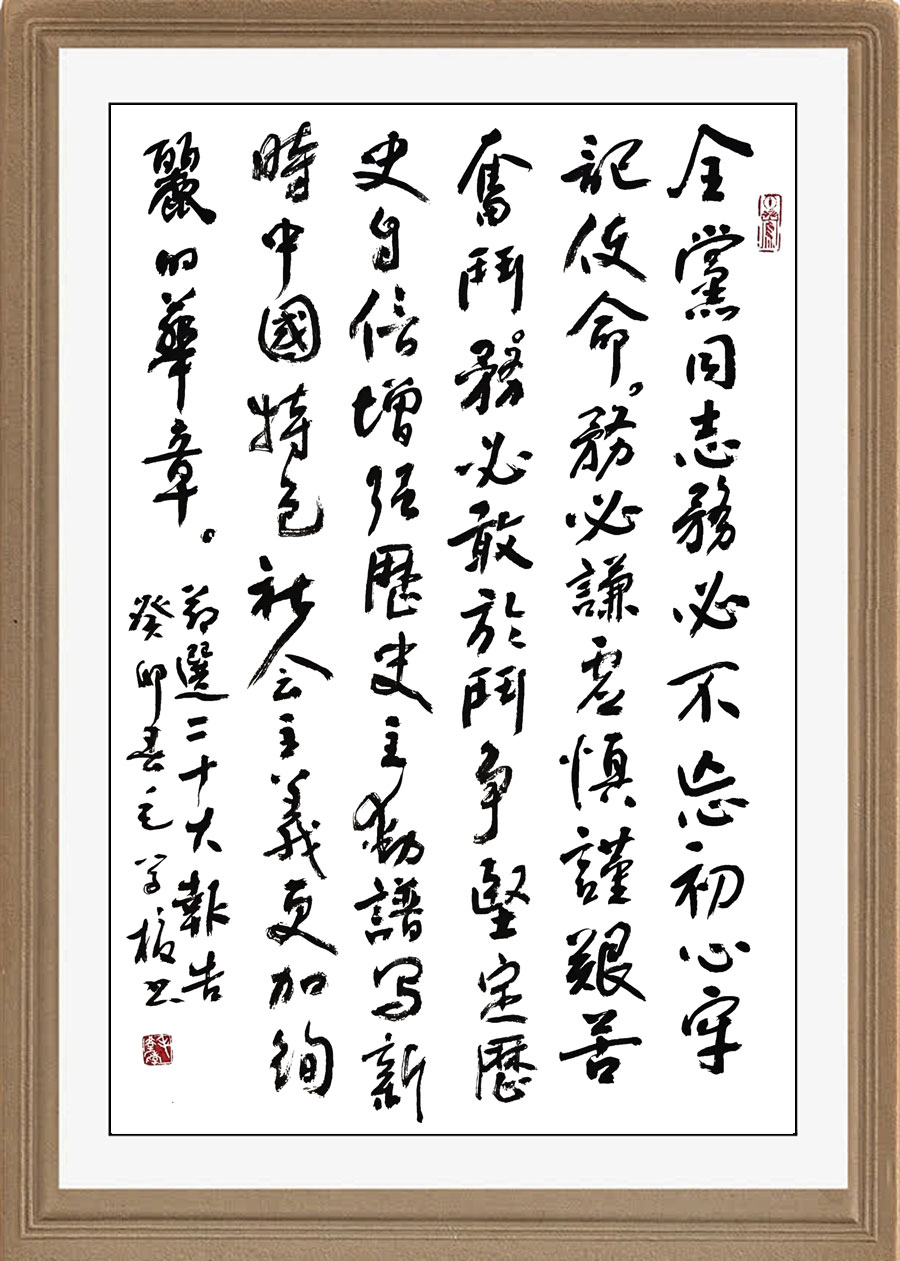 全黨同志務必不忘初心牢
記使命，務必謙虛慎謹艱苦
奮鬥務必敢於鬥争堅定歷
史自信增强歷史主動譜写新
時中國特色社会主義更加绚
麗的華章。
節選二十大報告
癸卯春毛学棪书